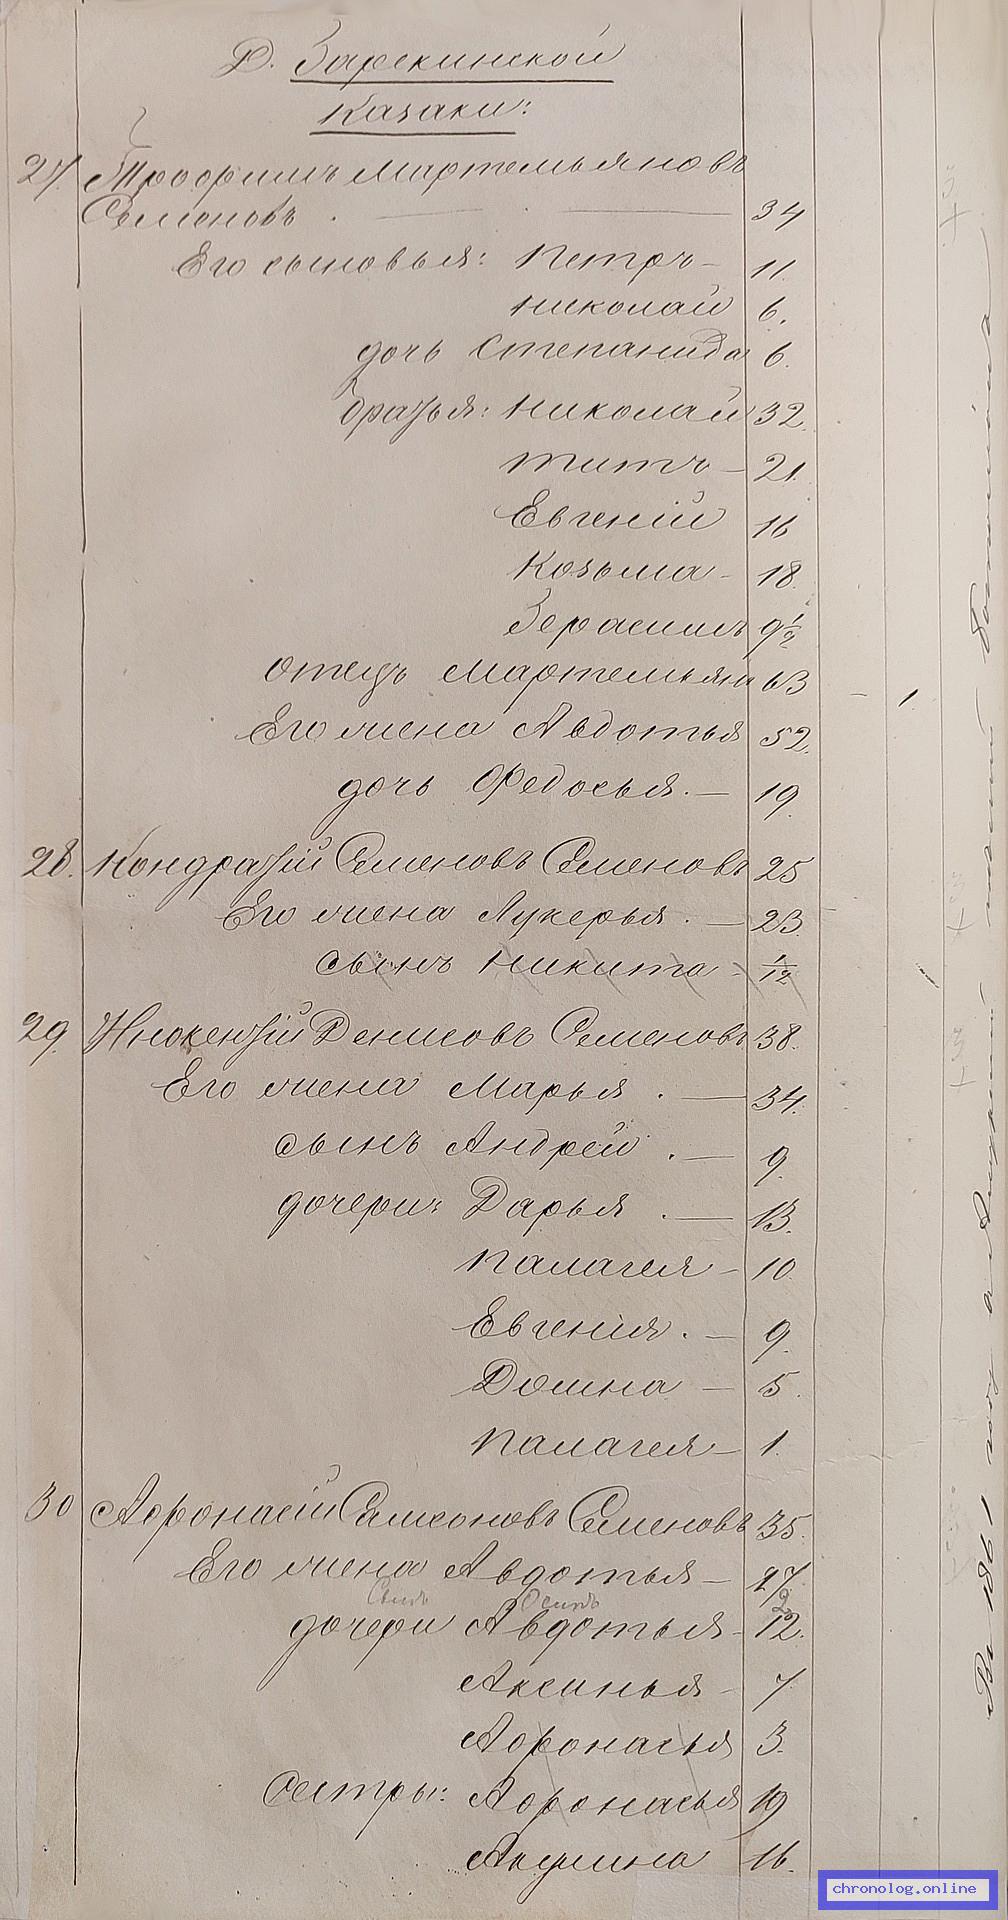 Д. Зарекинской
Казаки:
27. Трофимъ Мартемьяновъ
Семеновъ . 34
Его сыновья: Петръ – 11.
Николай 6.
дочь Степанида 6.
братья: Николай 32.
Титъ – 21.
Евгеній 16
Козьма – 18.
Герасимъ 9 1/2
отецъ Мартемьянъ 63 – 1.
Его жена Авдотья 52.
дочь Федосья. – 19.
28. Кондратій Семеновъ Семеновъ 25
Его жена Лукерья . – 23.
сынъ Никита – 1/12
29. Инокентій Денисовъ Семеновъ 38.
Его жена Марья . – 34.
сынъ Андрей . – 9.
дочери: Дарья . – 13.
Палагея – 10.
Евгенія . – 9.
Домна – 5.
Палагея – 1.
30 Афонасій Самсоновъ Семеновъ 35.
Его жена Авдотья – 27
Сынъ Осипъ 2
дочери Авдотья – 12.
Аксинья – 7
Афонасья 3.
Сестры: Афонасья 19
Акулина 16.
Въ 1861 году
chronolog.online